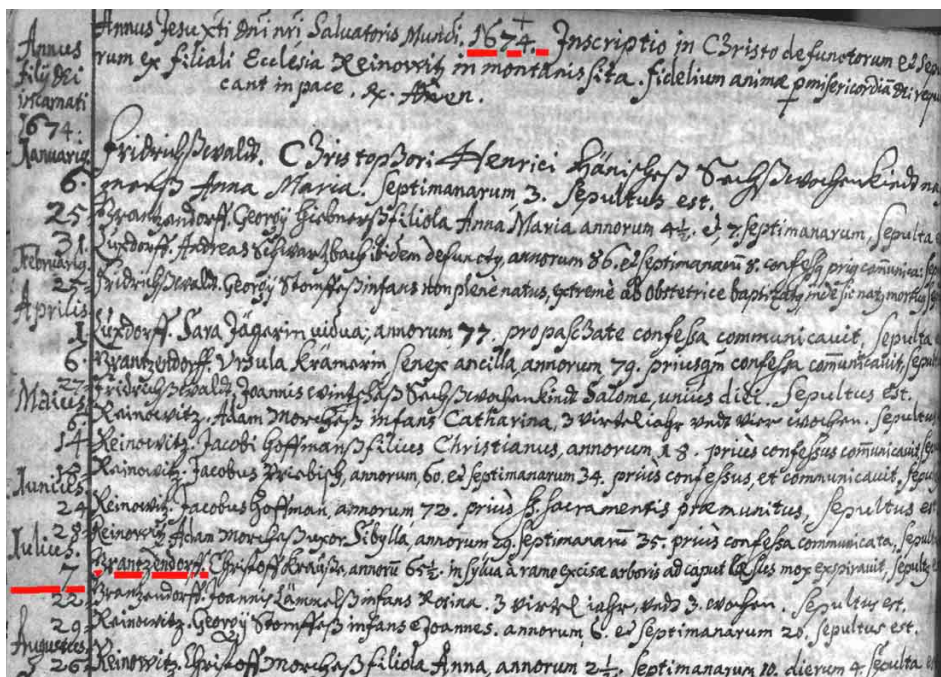 Annus Jesu Xti Dni nri Salvatoris Mundi. 1674. Inscriptio in Christo defunctorum et Sepu
rum ex filiali Ecclesia Reinowitz in montanis sita. fidelium animæ p misericordiã Dei requi
cant in pace. Amen.
Annus
filij Dei
incarnati
1674.
Januarij
6. Fridrichßwald. Christophori Henrici Hänischeß Sechßwochenkindt na
menß Anna Maria. Septimanarum 3. Sepultus est.
25 Brantzendorff. Georgij filiola Anna Maria annorum 4½. et 7. septimanarum, Sepulta e
31. Luxdorff. Andreas ibidem defunctus, annorum 86. et septimanarũ 8. confessus prius
Februarij
27. Fridrichßwald. Georgij infans non plene natus, extremè ab obstetrice
Aprilis
1 Luxdorff. Sara Jägerin vidua, annorum 77. pro paschate confessa communicavit, sepulta e
6. Brantzendorff. Ursula Krämerin senex ancilla, annorum 79. priusqm confessa comunicavit, sepul
27. Fridrichßwald, Joannis Sechßwochenkindt Salome, unius diei. Sepultus est.
Maius
6. Reinowitz. Adam infans Catharina, 3 viertel jahr vndt vier wochen. sepultus
14 Reinowitz. Jacobi Hoffmanß filius Christianus, annorum 18. priùs confessus comunicavit, sep
Reinowitz. Jacobus annorum 60. et septimanarum 34. priùs confessus, et communicavit, sepu
Junius.
24 Reinowitz. Jacobus Hoffman, annorum 72. priùs ss. sacramentis præmunitus, sepultus est
28 Reinowitz Adam uxor Sibylla, annorum 29. septimanarũ 35. priùs confessa communicata, sepulta
Julius.
7 Brantzendorff. Christoff annorũ 65½. in sylva à ramo excisæ arboris ad caput læsus mox expiravit, sepultus e
22. Brantzendorff. Joannis Lämmelß infans Rosina. 3 viertel jahr, vndt 3. wochen. sepultus est.
29 Reinowitz. Georgij infans Joannes. annorum 6. et septimanarum 20. sepultus est.
Augustus
26 Reinowitz. Christoff filiola Anna, annorum 2½. septimanarum 10. dierum 4. sepulta e